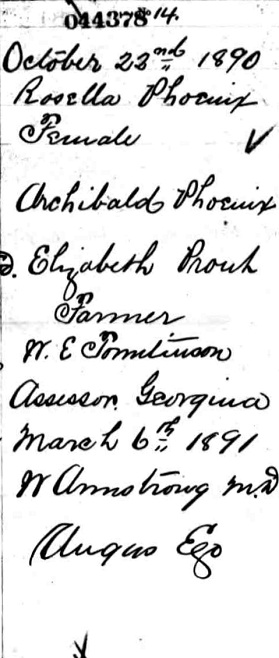 044378 14.
October 22nd 1890
Rosella Phoenix
Female
Archibald Phoenix
Elizabeth Prout
Farmer
W. E Tomlinson
Assessor. Georgina
March 6th 1891
W Armstrong M.D
Angus Ego